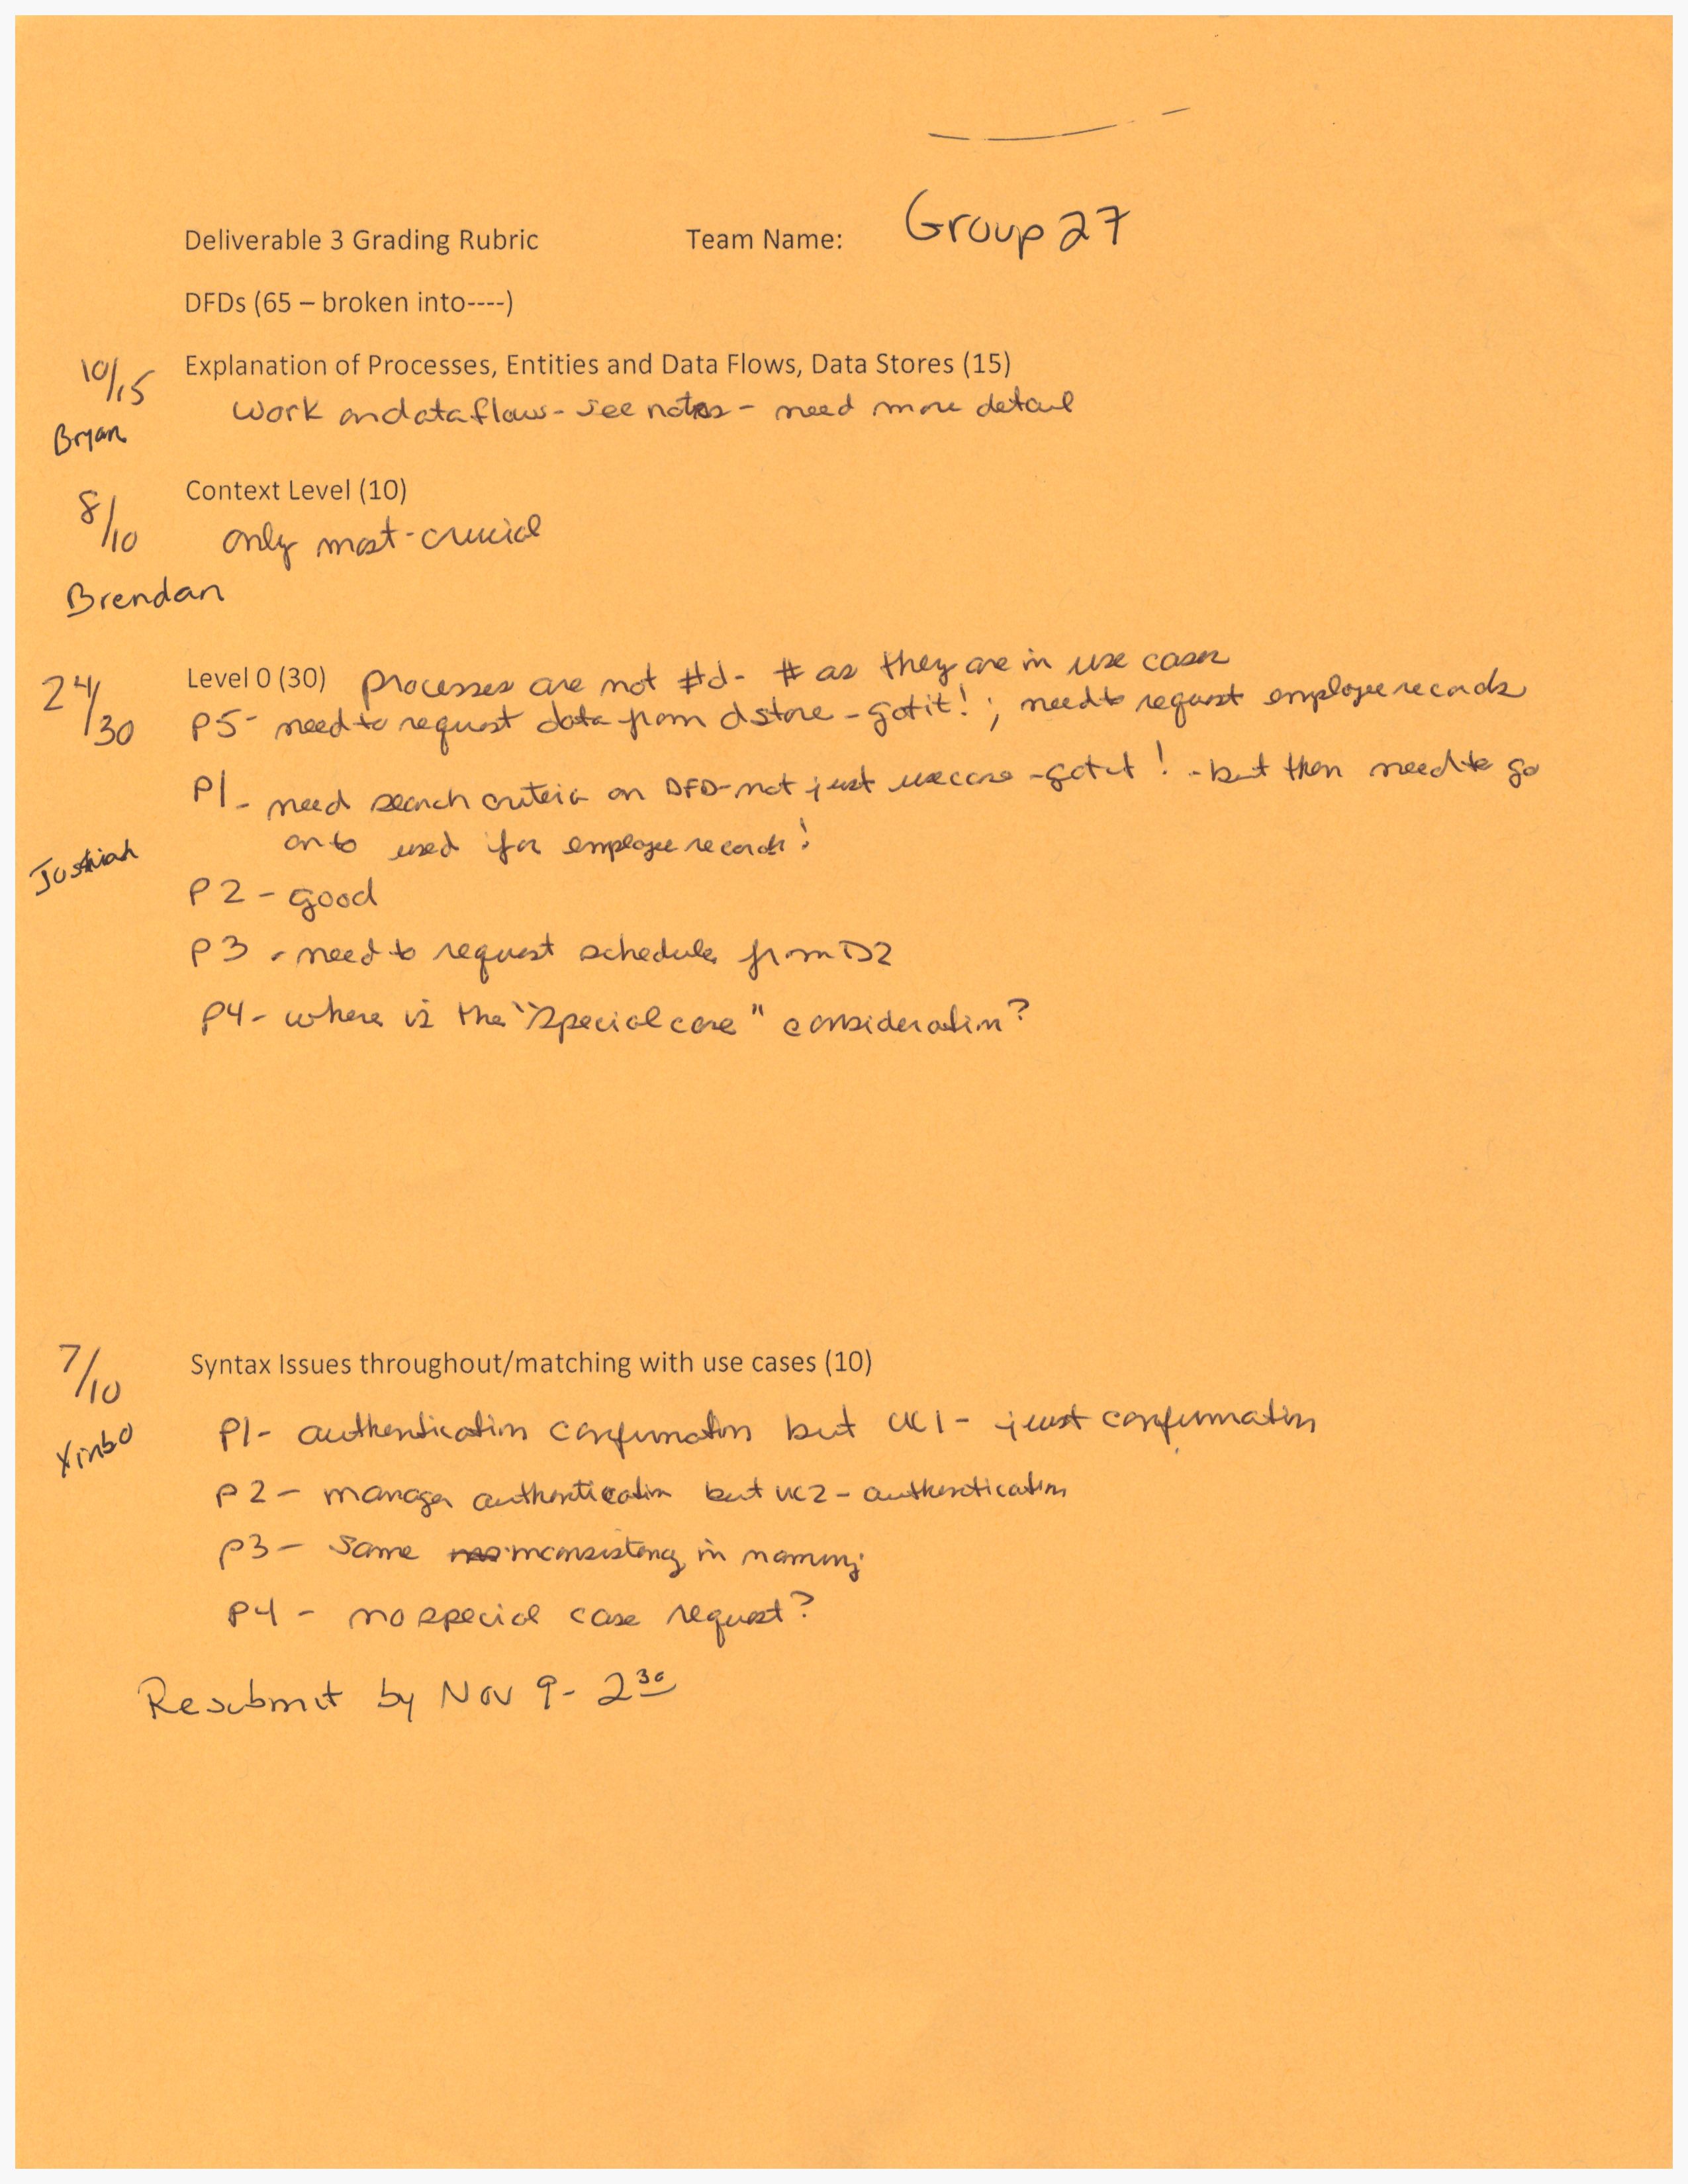 Deliverable 3 Grading Rubric Team Name: Group 27
DFDs (65 – broken into----)
10/15 Explanation of Processes, Entities and Data Flows, Data Stores (15)
work on data flows - see notes - need more detail
Bryan
8/10 Context Level (10)
only most-crucial
Brendan
24/30 Level 0 (30) processes are not #d - # as they are in use cases
P5 - need to request data from d store - got it! ; need to request employee records
P1 - need search criteria on DFD - not just use case - got it! - but then need to go
on to used for employee records!
Joshiah
P2 - good
P3 - need to request schedule from D2
P4 - where is the "special case" consideration?
7/10 Syntax Issues throughout/matching with use cases (10)
P1 - authentication confirmation but UC1 - just confirmation
Xinbo
P2 - manager authentication but UC2 - authentication
P3 - Same inconsistency in naming
P4 - no special case request?
Resubmit by Nov 9 - 2 30